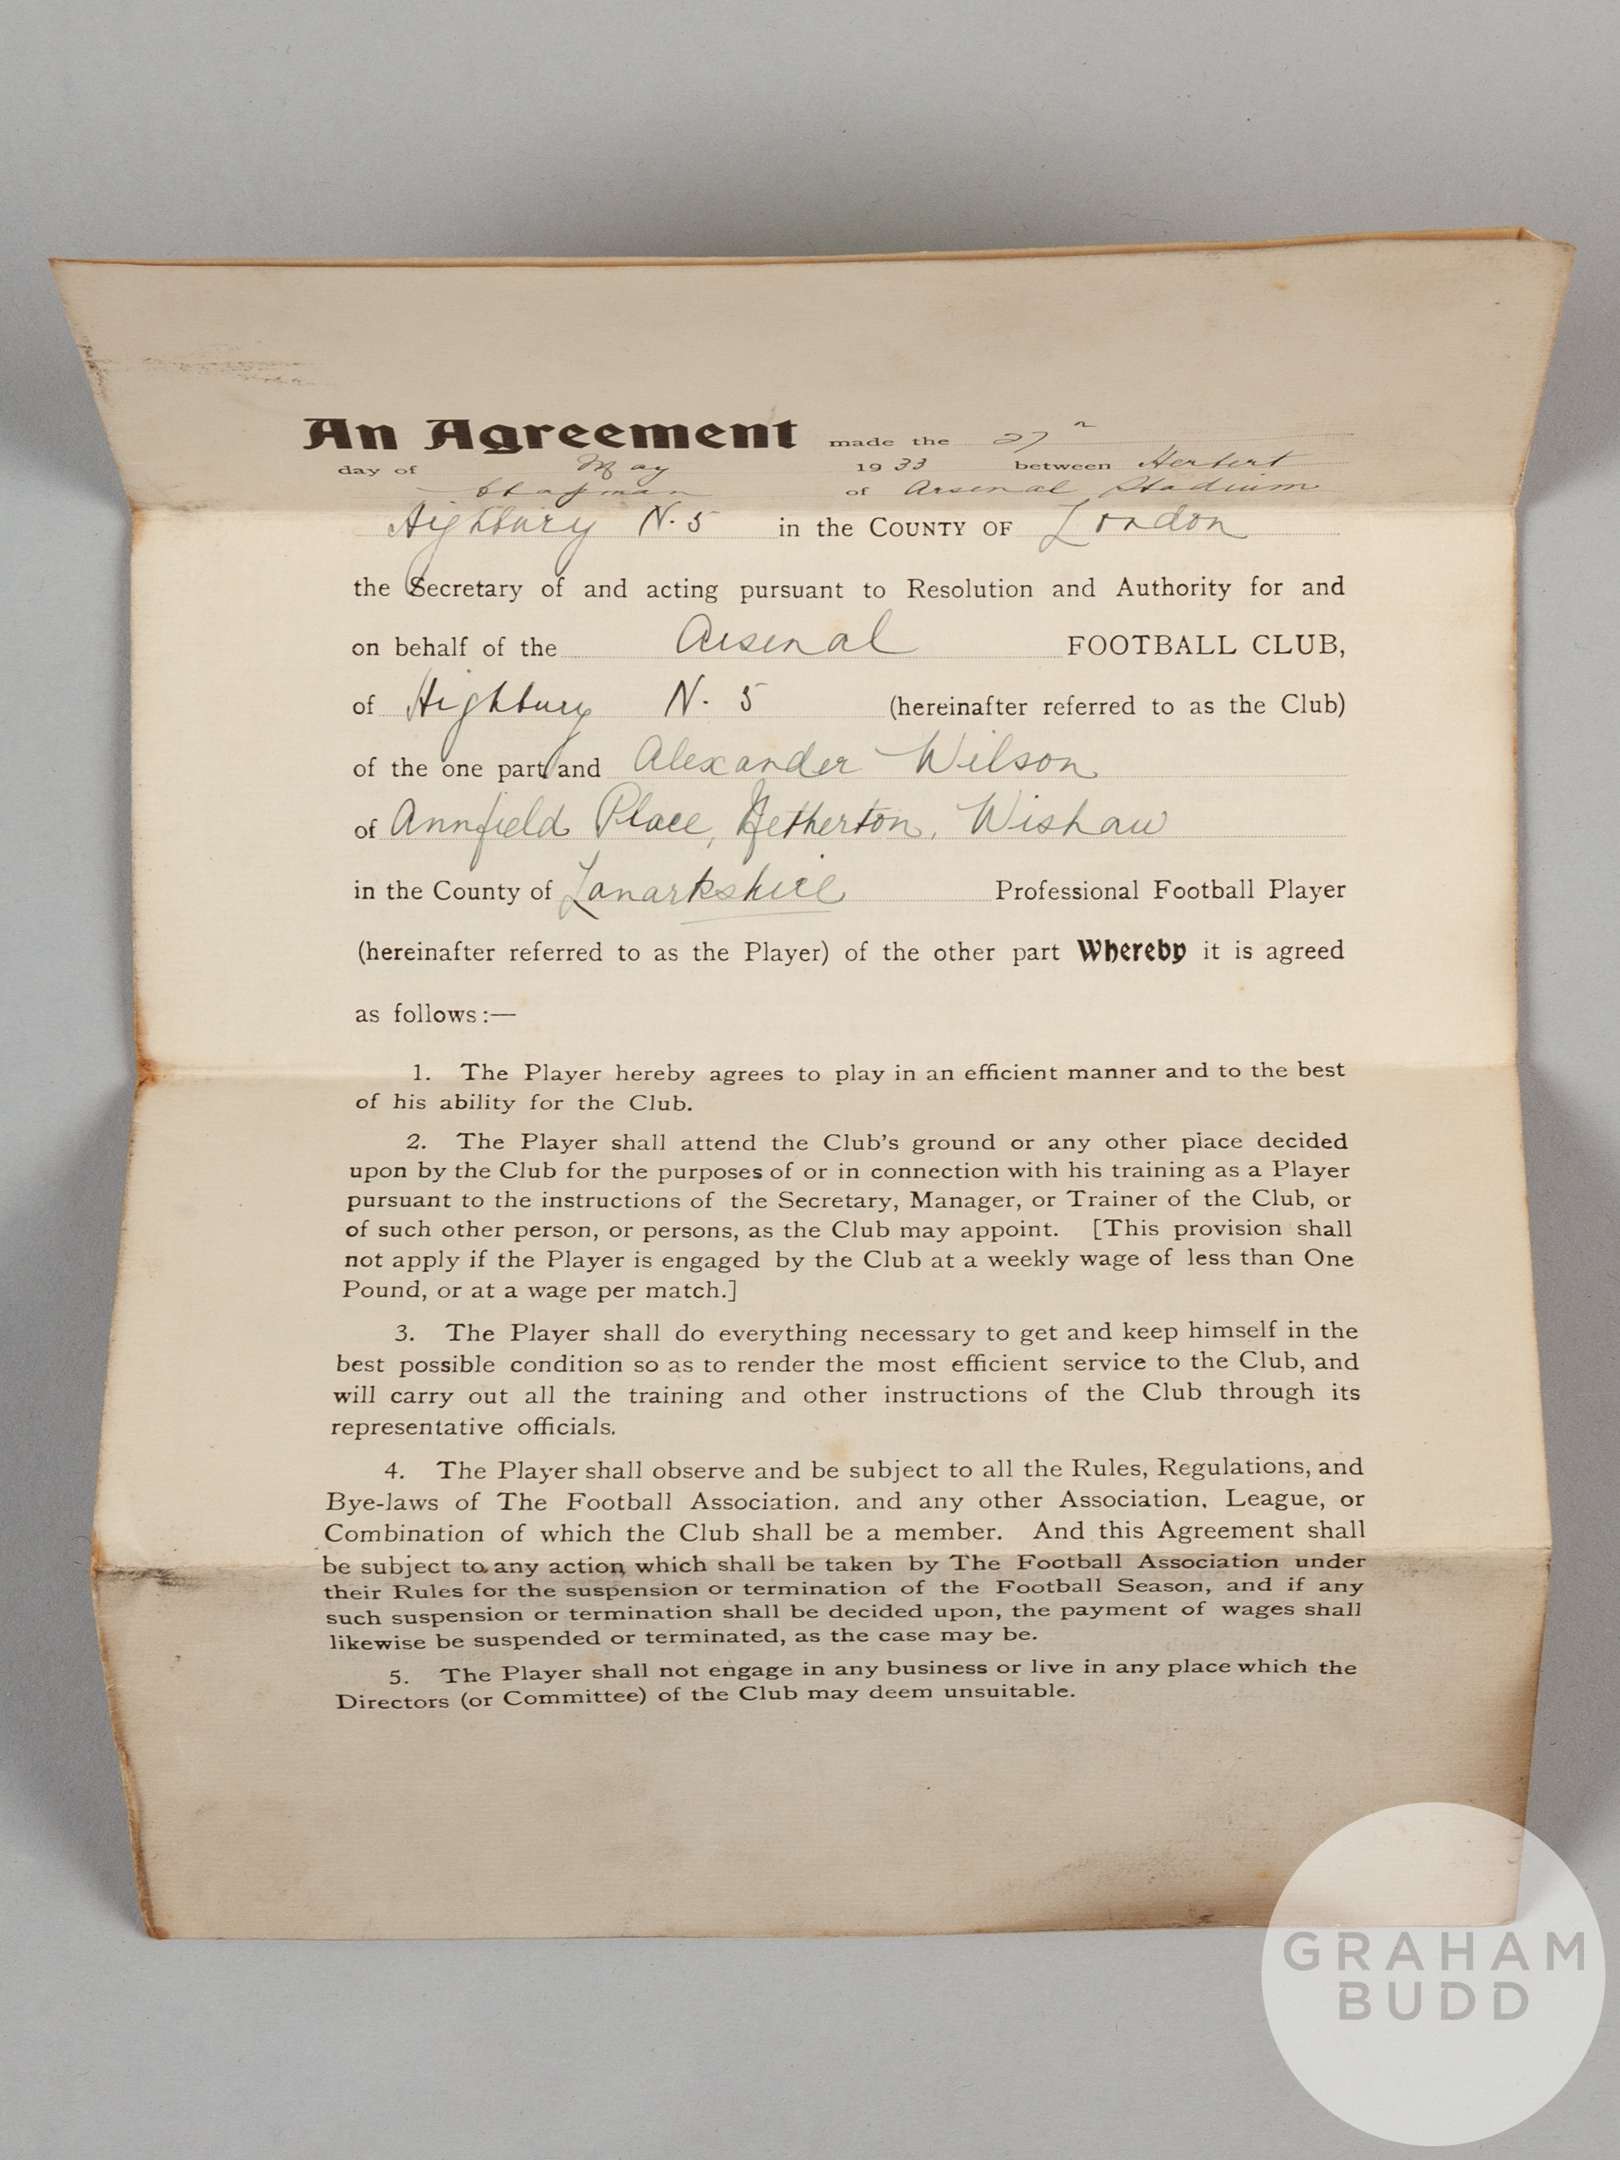 An Agreement made the 27
day of May 1933 between Herbert
Chapman of Arsenal Stadium
Highbury N. 5 in the COUNTY OF London
the Secretary of and acting pursuant to Resolution and Authority for and
on behalf of the Arsenal FOOTBALL CLUB,
of Highbury N. 5 (hereinafter referred to as the Club)
of the one part and Alexander Wilson
of Annfield Place, Netherton, Wishaw
in the County of Lanarkshire Professional Football Player
(hereinafter referred to as the Player) of the other part Whereby it is agreed
as follows:—
1. The Player hereby agrees to play in an efficient manner and to the best
of his ability for the Club.
2. The Player shall attend the Club's ground or any other place decided
upon by the Club for the purposes of or in connection with his training as a Player
pursuant to the instructions of the Secretary, Manager, or Trainer of the Club, or
of such other person, or persons, as the Club may appoint. [This provision shall
not apply if the Player is engaged by the Club at a weekly wage of less than One
Pound, or at a wage per match.]
3. The Player shall do everything necessary to get and keep himself in the
best possible condition so as to render the most efficient service to the Club, and
will carry out all the training and other instructions of the Club through its
representative officials.
4. The Player shall observe and be subject to all the Rules, Regulations, and
Bye-laws of The Football Association, and any other Association, League, or
Combination of which the Club shall be a member. And this Agreement shall
be subject to any action which shall be taken by The Football Association under
their Rules for the suspension or termination of the Football Season, and if any
such suspension or termination shall be decided upon, the payment of wages shall
likewise be suspended or terminated, as the case may be.
5. The Player shall not engage in any business or live in any place which the
Directors (or Committee) of the Club may deem unsuitable.
GRAHAM
BUDD